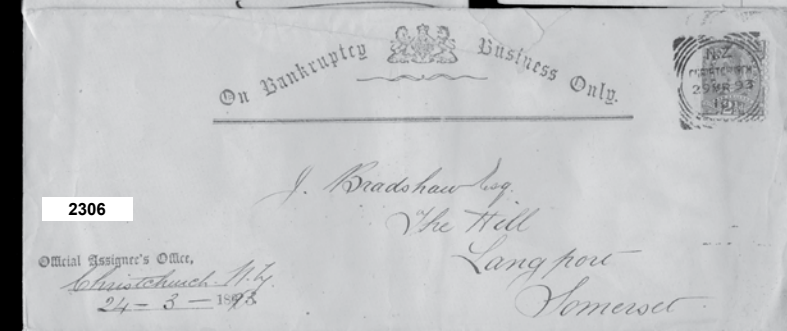 On Bankruptcy Business Only.
N.Z
CHRISTCHURCH
29 MR 93
10
J. Bradshaw Esq.
The Hill
Langport
Somerset
2306
Official Assignee's Office,
Christchurch. N.Z.
24 - 3 - 1893